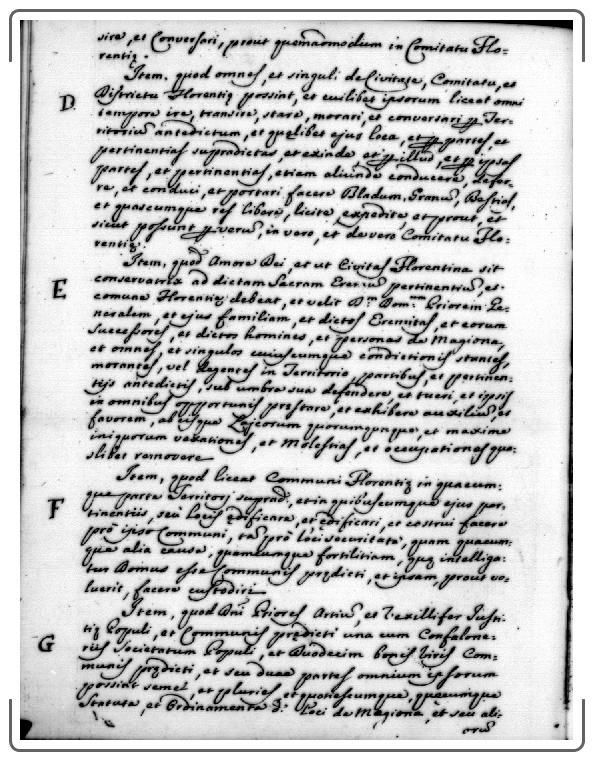 sire, et Conversari, prout quemadmodum in Comitatu Flo=
rentię.
Item, quod omnes, et singuli de Civitate, Comitatu, et
D
Districtu Florentię possint, et cuilibet ipsorum liceat omni
tempore ire, transire, stare, morari, et conversari ꝑ Ter=
ritoriũ antedictum, et quęlibet ejus loca, et ꝑ partes, et
pertinentias supradictas, et exinde et ꝑ illud, et ꝑ ipsas
partes, et pertinentias, etiam aliunde conducere, defer=
re, et conduci, et portari facere Bladum, Granũ, Bestias,
et quascumque res libere, licite, expedite, et prout, et
sicut possunt ꝑ verũ, in vero, et de vero Comitatu Flo=
rentię.
Item, quod Amore Dei, et ut Civitas Florentina sit
E
conservatrix ad dictam Sacram Eremũ pertinentiũ,
comune Florentię debeat, et velit Priorem Ge=
neralem, et ejus familiam, et dictos Eremitas, et eorum
Successores, et dictos homines, et personas de Magiona,
et omnes, et singulos cuiuscumque condictionis stantes,
morantes, vel degentes in Territorio partibus, et pertinen=
tijs antedictis, sub umbra sua defendere, et tueri, et ipsis
in omnibus opportunis prestare, et exhibere auxiliũ, et
favorem, absque quorumqunque, et maxime
iniquorum vexationes, et Molestias, et occupationes quo=
slibet removere
Item, quod liceat Communi Florentię in quacum=
F
que parte Territorj suprad., et in quibuscumque ejus per=
tinentiis, seu locis ędificare, et ędificari, et costrui facere
prõ ipso Communi, tã prõ loci securitate, quam quacum=
que alia causa, quamcumque fortilitiam, quę intelliga=
tur Domus esse Communis prędicti, et ipsam, prout vo=
luerit, facere custodiri
Item, quod Dñi Priores Artiũ, et Vexillifer Justi=
G
tię Populi, et Communis prędicti una cum Confalone=
riis Societatum Populi, et Duodecim bonis Viris Com=
munis prędicti, et seu duae partes omnium ipsorum
possint semel, et pluries, et quotiescumque, quęcumque
Statuta, et Ordinamenta d.ⁱ Loci de Magiona, et seu ali=
orũ